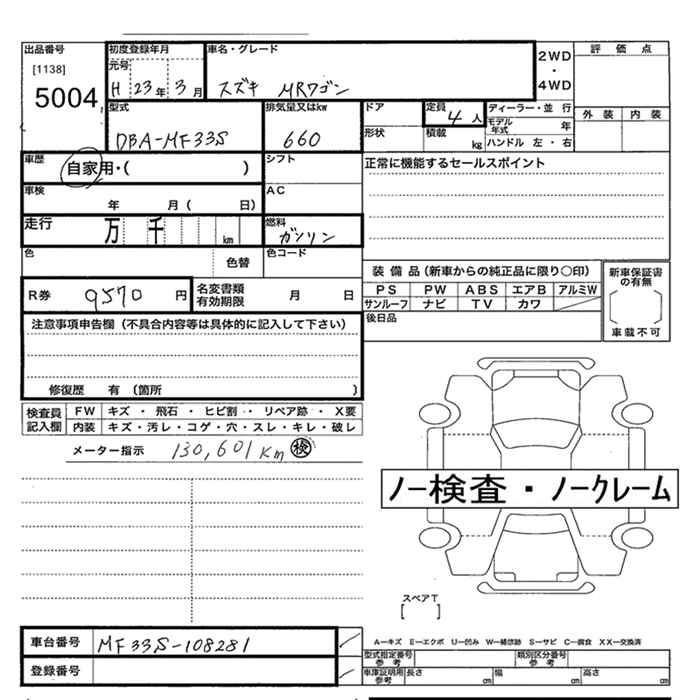 出品番号 初度登録年月 車名・グレード 2WD・4WD 評価点
[1138] 元号
5004 H 23年 3月 スズキ MRワゴン
型式 排気量又はkw ドア 定員 4人 ディーラー・並行 外装 内装
DBA-MF33S 660 形状 積載 kg モデル年式 年
ハンドル 左・右
車歴 自家用・( ) シフト 正常に機能するセールスポイント
車検 年 月( 日) AC
走行 万 千 km 燃料 ガソリン
色 色替 色コード
装備品(新車からの純正品に限り○印) 新車保証書の有無
R券 9570円 名変書類有効期限 月 日 PS PW ABS エアB アルミW
サンルーフ ナビ TV カワ
車載不可
注意事項申告欄(不具合内容等は具体的に記入して下さい) 後日品
修復歴 有(箇所 )
検査員記入欄 FW キズ・飛石・ヒビ割・リペア跡・X要
内装 キズ・汚レ・コゲ・穴・スレ・キレ・破レ
メーター指示 130,601km 検
ノー検査・ノークレーム
スペアT
[ ]
車台番号 MF33S-108281 A―キズ E―エクボ U―凹み W―補修跡 S―サビ C―腐食 XX―交換済
登録番号 型式指定番号参考 類別区分番号参考
車庫証明用参考 長さ cm 幅 cm 高さ cm